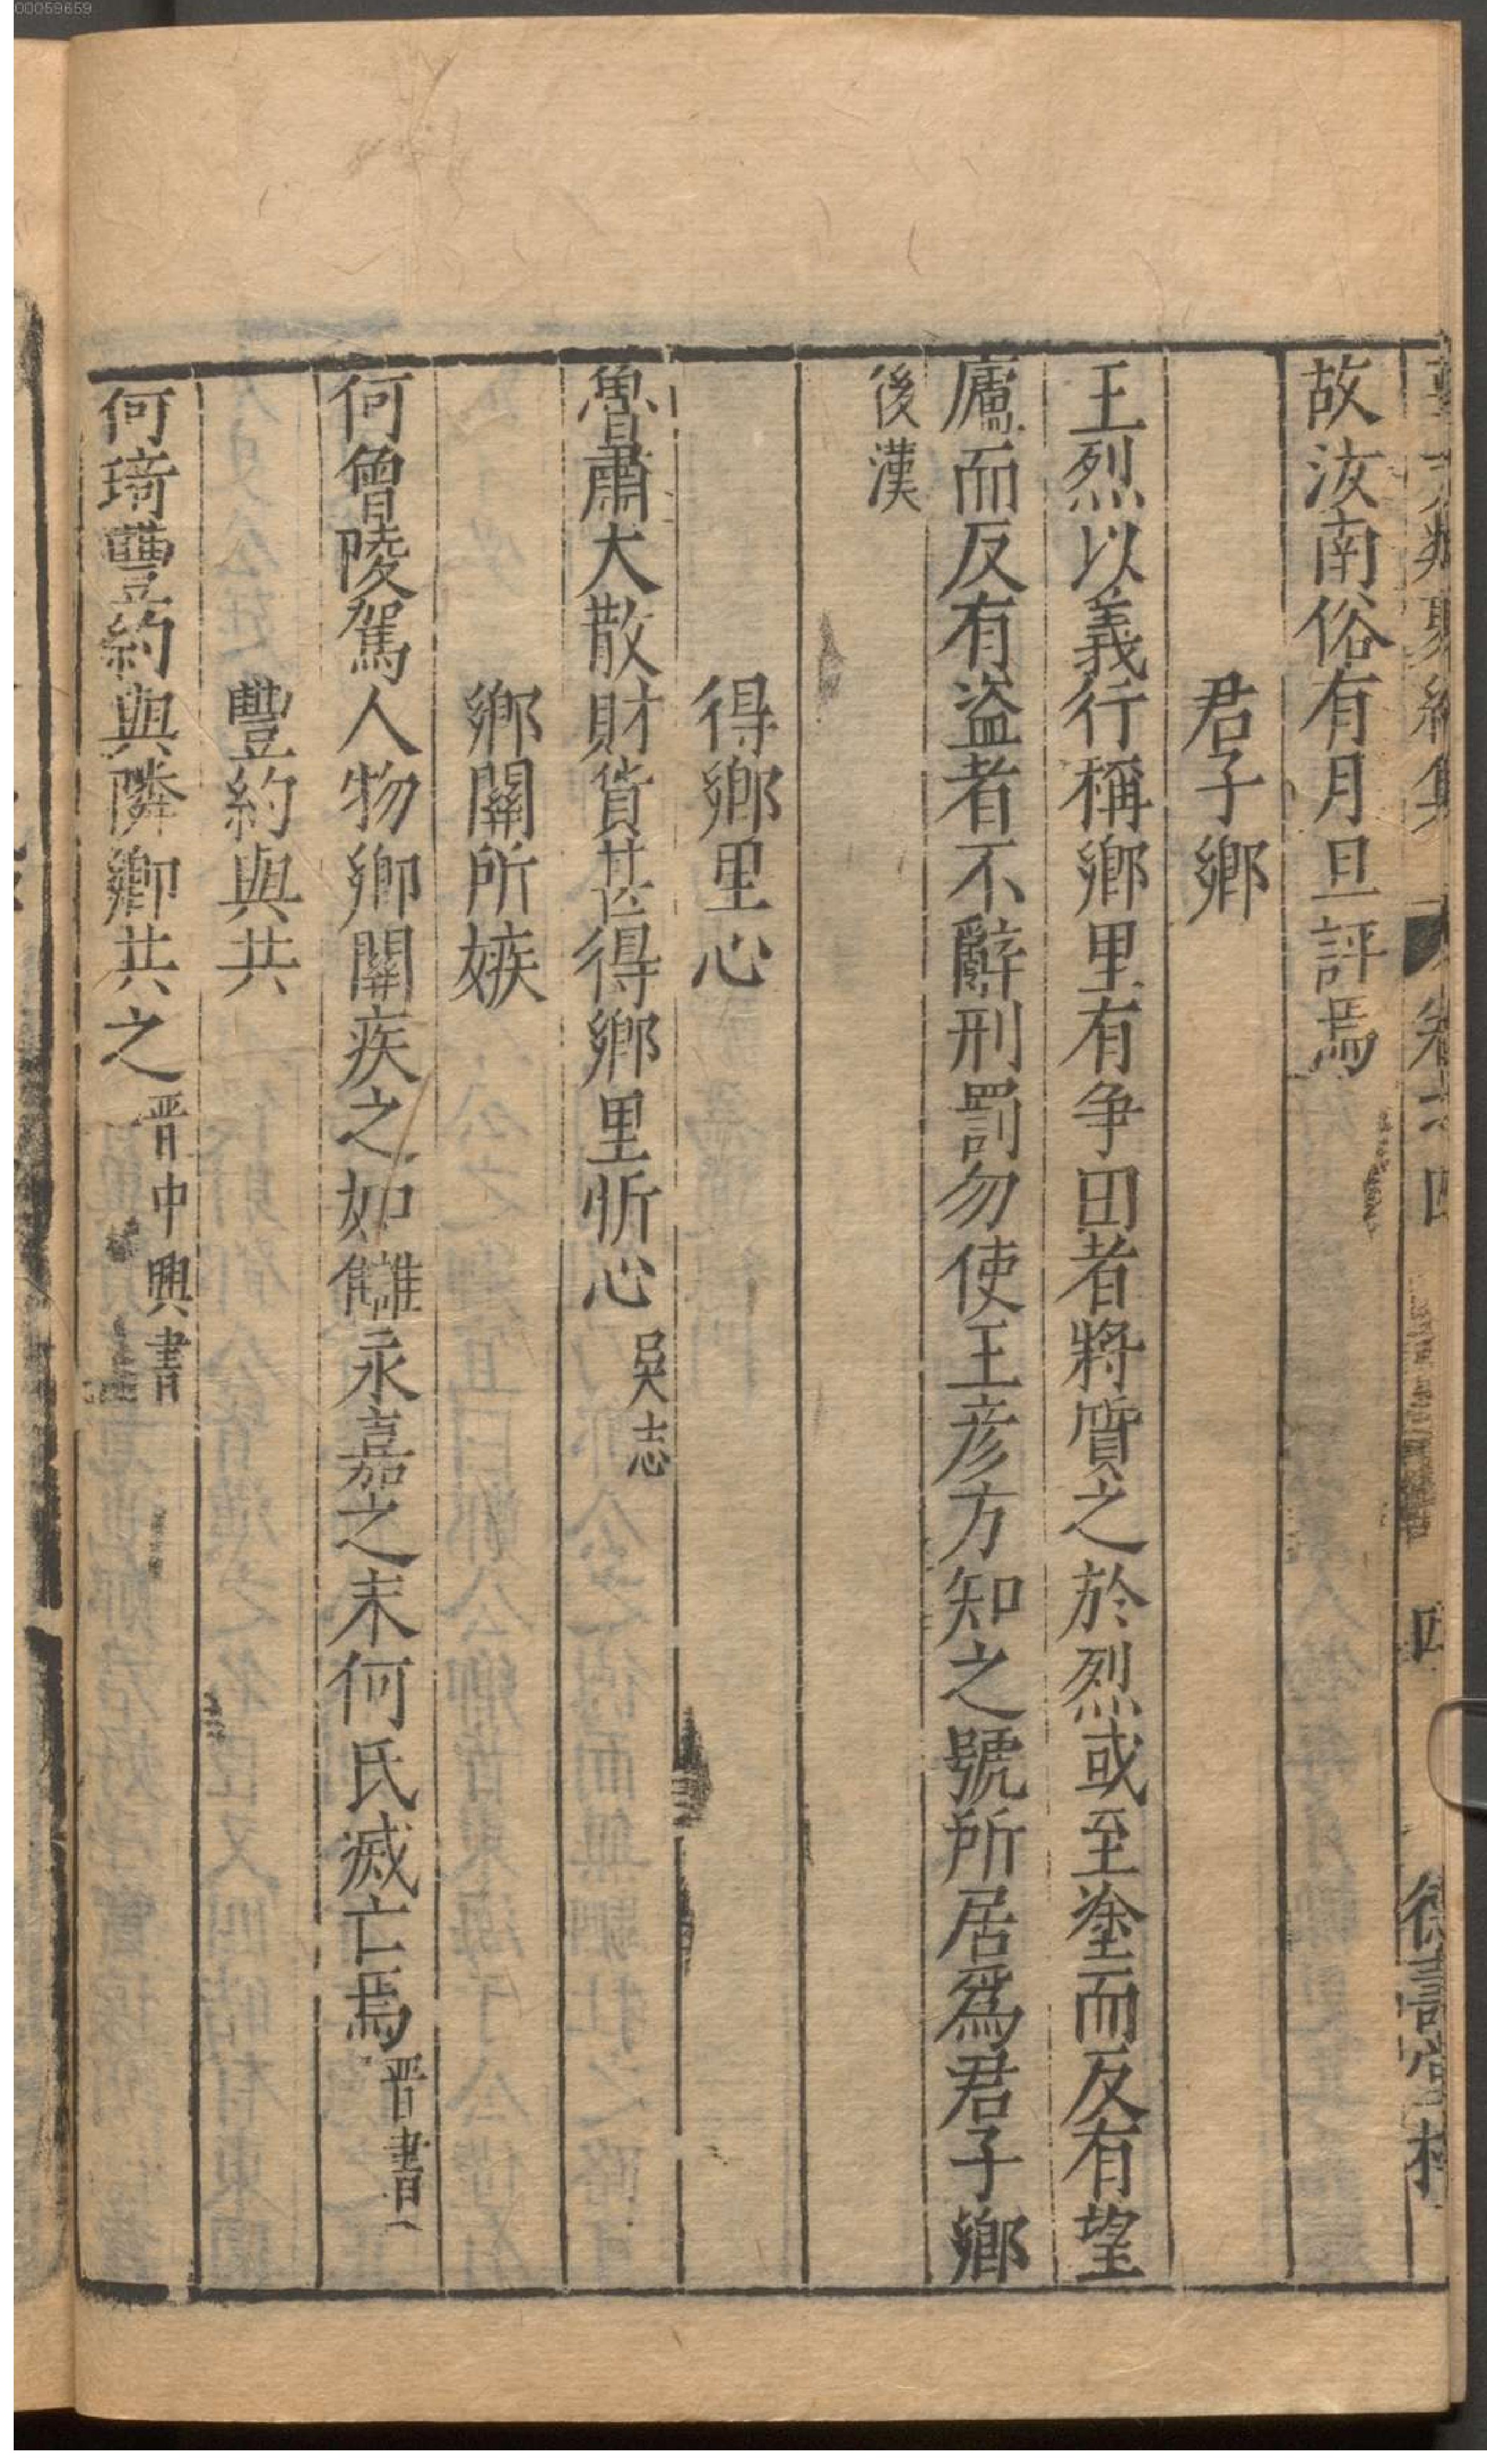 00059659
故汝南俗有月旦評焉
君子鄉
王烈以義行稱鄉里有争田者將質之於烈或至塗而反有望
廬而反有盗者不辭刑罰勿使王彦方知之號所居爲君子鄉
後漢
得鄉里心
魯肅大散財貨甚得鄉里忻心吳志
鄉關所嫉
何曾陵駕人物鄉關疾之如讎永嘉之末何氏滅亡焉晋書
豐約與共
何琦豐約與隣鄉共之晋中興書